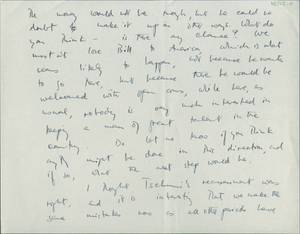 The money would not be much, but he could no
doubt to make it up in other ways. What do
you think – is there any chance? We
must not lose Bill to America, which is what
seems likely to happen, not because he wants
to go there, but because there he would be
welcomed with open arms, while here, as
usual, nobody is very much interested in
keeping a man of great talent in the
country. Do let me know if you think
anything might be done in this direction, and
if so, what the next step would be.
I thought announcement was
right, and it is interesting that we make the
same mistakes now as all the